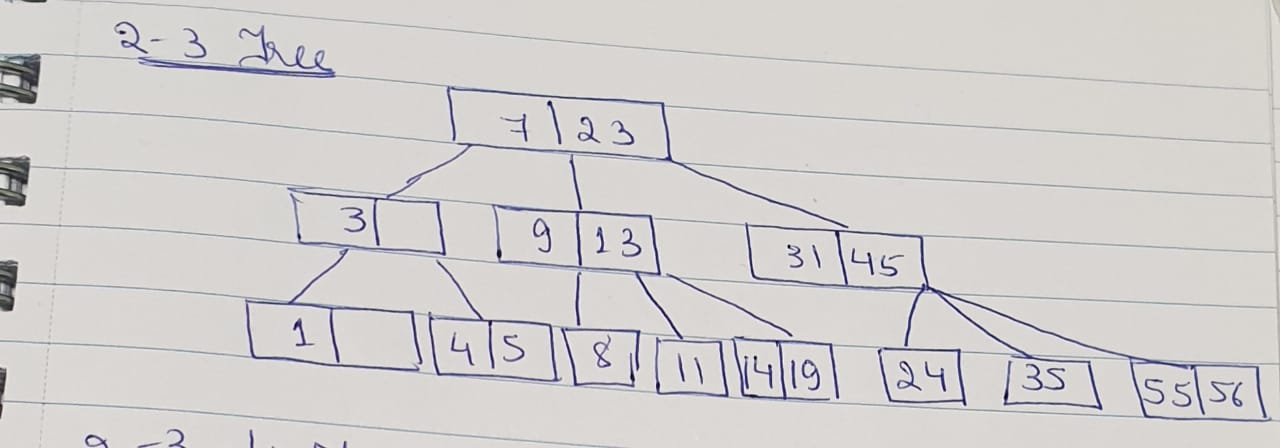 2-3 Tree
7 23
3 9 13 31 45
1 4 5 8 11 14 19 24 35 55 56